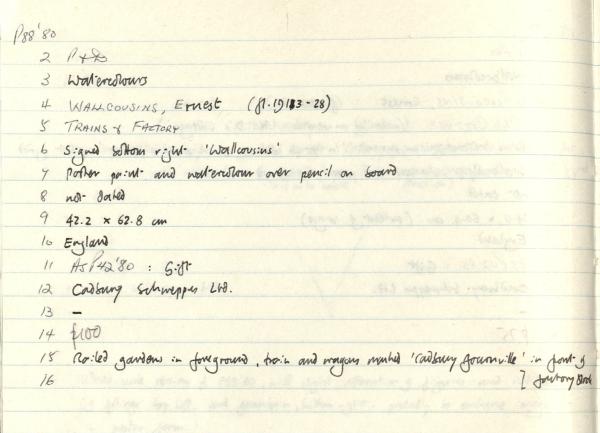 P88'80
2 P+D
3 Watercolours
4 WALLCOUSINS, Ernest (fl. 1913-28)
5 TRAINS & FACTORY
6 Signed bottom right 'Wallcousins'
7 Poster paint and watercolour over pencil on board
8 not dated
9 42.2 x 62.8 cm
10 England
11 AsP42'80 : Gift
12 Cadbury Schweppes Ltd.
13 –
14 £100
15 Railed gardens in foreground, train and wagons marked 'Cadbury Bournville' in front of
16 ] factory block